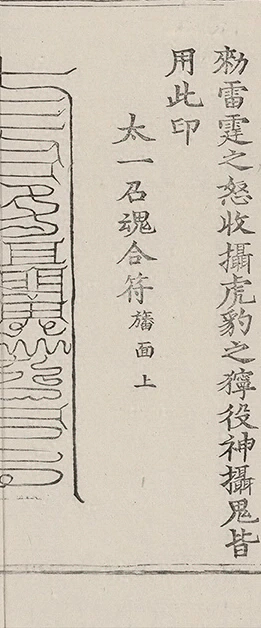 勑雷霆之怒收攝虎豹之獰役神攝鬼皆
用此印
太一召魂合符旛面上